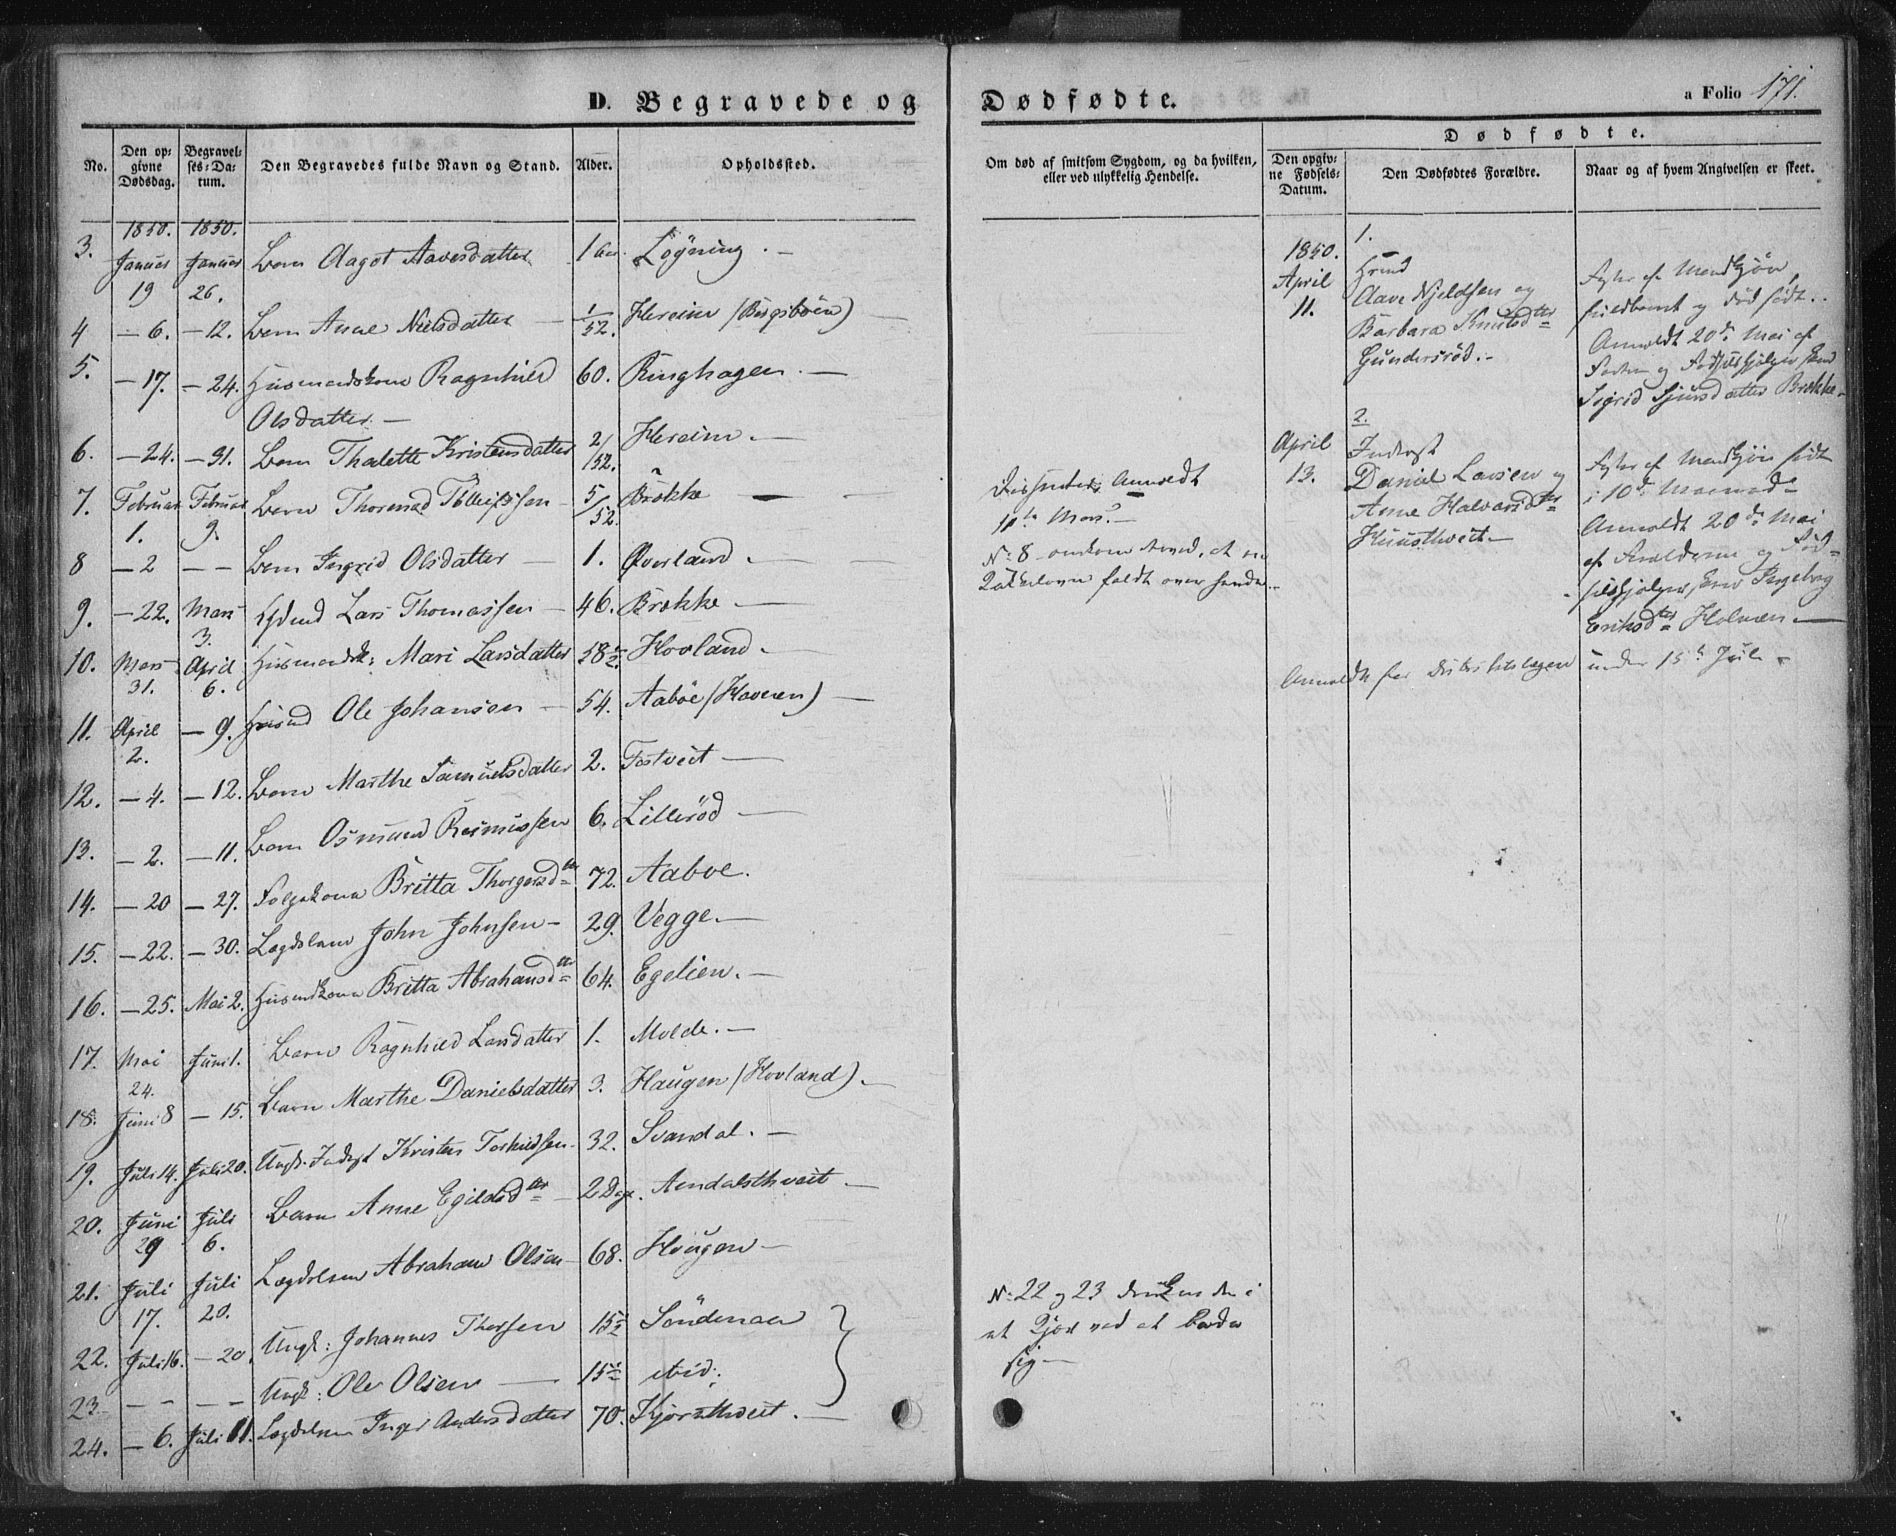 D. Begravede og Dødfødte.
a Folio 171.
No. Den opgivne Dødsdag. Begravelses-Datum. Den Begravedes fulde Navn og Stand. Alder. Opholdssted.
Om død af smitsom Sygdom, og da hvilken, eller ved ulykkelig Hendelse.
Dødfødte.
Den opgivne Fødsels-Datum. Den Dødfødtes Forældre. Naar og af hvem Angivelsen er skeet.
1850. 1850.
3. Januar 19 Januar 26. Barn Aagot Aavesdatter 1 Løgning.
4 — 6. — 12. Barn Anne Nielsdatter 1/52. Hereim
5. — 17. — 24. Huusmandskone Ragnhild 60. Ringhagen. —
Olsdatter. —
6. — 24. — 31. Barn Thalette Kristensdatter 2/52. Hereim. —
7. Februar 1. Februar 9. Barn 5/52. Brekke —
8 — 2 — — Barn Ingrid Olsdatter 1. Øverland. —
9. — 22. Mars 3. Lars Thomassen — 46. Brekke —
10. Mars 31. April 6. Huusmandsk: Mari Larsdatter 58½. Hovland. —
11. April 2. — 9. Ole Johansen — 54. Aabøe (Haveren) —
12. — 4. — 12. Barn Marthe Samuelsdatter 2. Tostveit —
13. — 2. — 11. Barn Osmund Rasmussen 6. Lillerød —
14. — 20 — 27. Folgekone Britta Thorgersdtr 72. Aaboe.
15. — 22. — 30. Lægdslem John Johnsen — 29. Vegge. —
16. — 25. Mai 2. Britta Abrahamsdtr 64. Egelien. —
17. Mai 24. Juni 1. Barn Ragnhild Larsdatter 1. Molde. —
18. Juni 8 — 15. Barn Marthe Danielsdatter 3. Haugen (Hovland). —
19. Juli 14. Juli 20. Ungk. Inderst Kristen 32. Svandal. —
20. Juni 29 Juli 6. Barn Anne Egildsdtr — 2 Dage. —
21. Juli 17. Juli 20. Lægdslem Abraham Olsen — 68. Haugen —
22. Juli 16. — 20. Ungk: Johannes 15½ Søndenaa
23. — — — — Ungk: Ole Olsen — 15½ ibid:
24. — 6. Juli 11. Lægdslem Inger Andersdatter 70. —
Anmeldt
No: 8 omkom derved, at en
faldt over hende. —
No: 22 og 23 druknede i
et Tjern ved at bade
sig —
1850.
April
11.
1.
Aave Kjeldsen og
Barbara Knutsdtr
Gundersrød. —
død født.
Anmeldt 20de Mai af
Sigrid Sjursdatter Brekke. —
April
13.
2.
Inderst
Daniel Larsen og
Anne Halvorsdtr
i 10de Maaned
Anmeldt 20de Mai
af Forældrene og
Ingeborg
Eriksdtr —
Anmeldt for Districtslægen under 15de Juli —